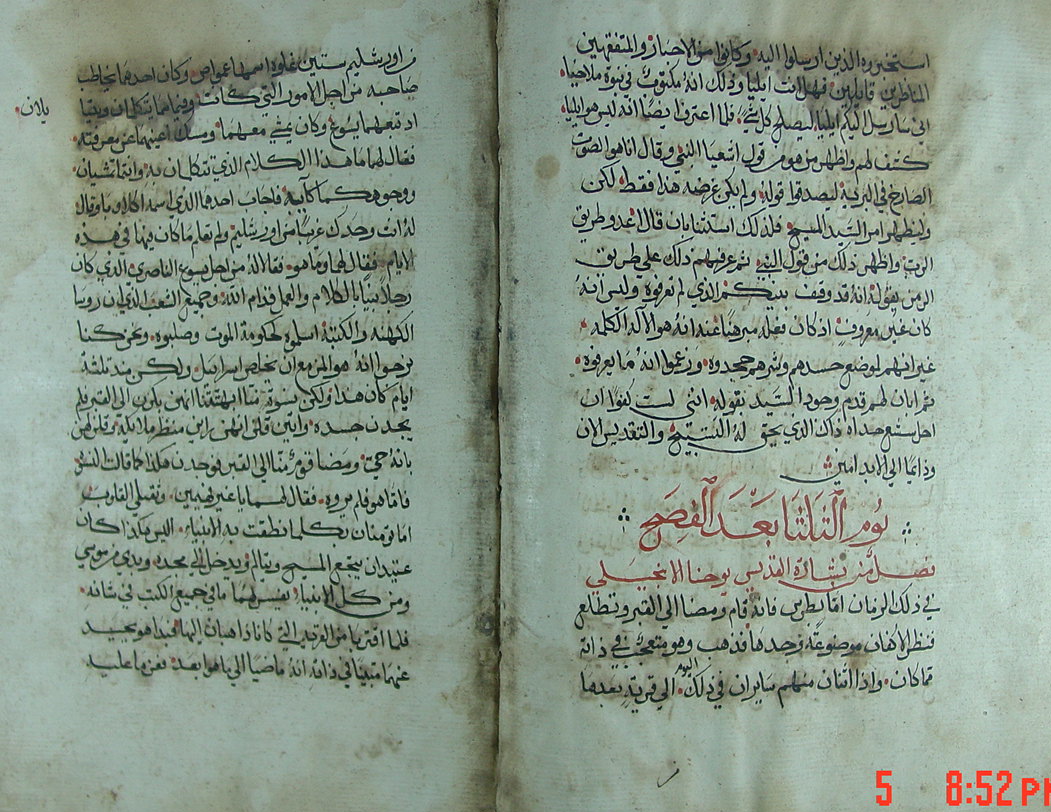 استخبروه الذين ارسلوا اليه وكانوا من الاحبار والمتفقهين
الناظرين قايلين فهل انت ايليا وذلك انه مكتوب في نبوة ملاخيا
اني سارسل اليكم ايليا ليصلح كل شي فلما اعترف ايضا انه ليس هو ايليا
كشف لهم واظهر من هو من قول اشعيا النبي وقال انا هو الصوت
الصارخ في البرية ليصدقوا قوله ولم يكن غرضه هذا فقط لكن
وليظهر امر السيد المسيح فلذلك قال اعدو طريق
الرب واظهر ذلك من قول النبي ثم عرفهم ذلك علي طريق
الرمز بقوله انه قد وقف بينكم الذي لم تعرفوه وليس انه
كان غير معروف اذ كان بفعله مبرهنا عنه انه هو الاله الكلمه
غير انهم لموضع حسدهم وشرهم جحدوه وزعموا انه ما يعرفوه
ثم ابان لهم قدم وجود السيد بقوله انني لست كفوا ان
احل سيع حداه ذاك الذي يحق له التسبيح والتقديس الان
ودايما الي الابد امين
يوم الثلثا بعد الفصح
فصل من بشارة القديس يوحنا الانجيلي
في ذلك الزمان اما بطرس فانه قام ومضا الي القبر وتطلع
فنظر الاكفان موضوعة وحدها فذهب وهو متعجب في ذاته
مما كان واذا اثنان منهم سايران في ذلك اليوم الي قرية بعدها
من اورشليم ستين غلوه اسمها عمواص وكان احدهما يخاطب
صاحبه من اجل الامور التي كانت وفيما هما يتكلمان
يلان
اد تبعهما يسوع وكان يمشي معهما ومسك اعينهما عن معرفته
فقال لهما ما هذا الكلام الذي تتكلمان به وانتما تمشيان
ووجوهكما كايبه فاجاب احدهما الذي اسمه اكلاوبا وقال
له انت وحدك غريبا من اورشليم ولم تعلم ما كان فيها في هذه
الايام فقال لهما وما هو فقالا له من اجل يسوع الناصري الذي كان
رجلا نبيا بالكلام والعمل قدام الله وجميع الشعب الذي ان روسا
الكهنه والكتبة اسلموه لحكومة الموت وصلبوه ونحن كنا
نرجوا انه هو المزمع ان يخلص اسرايل ولكن مند ثلثة
ايام كان هدا ولكن نسوة منا ابهتتنا انهن بكرن الي القبر فلم
يجدن جسده واتين قلن انهن راين منظر ملايكة وقلن لهن
بانه حي ومضا قوم منا الي القبر فوجدن هكذا كما قالت النسوة
فاما هو فلم يروه فقال لهما يا غير فهيمين وثقيلي القلوب
اما تومنان بكلما نطقت به الانبياء اليس هكذا كان
عتيدان يتوجع المسيح ويتالم ويدخل الي مجده وبدي من موسي
ومن كل الانبياء يفسر لهما ما في جميع الكتب في شانه
فلما اقتربا من القرية التي كانا ذاهبان اليها فبدا هو يحيد
عنهما في ذاته انه ماضيا الي ما هو ابعد فعزما عليه
5 8:52 PM